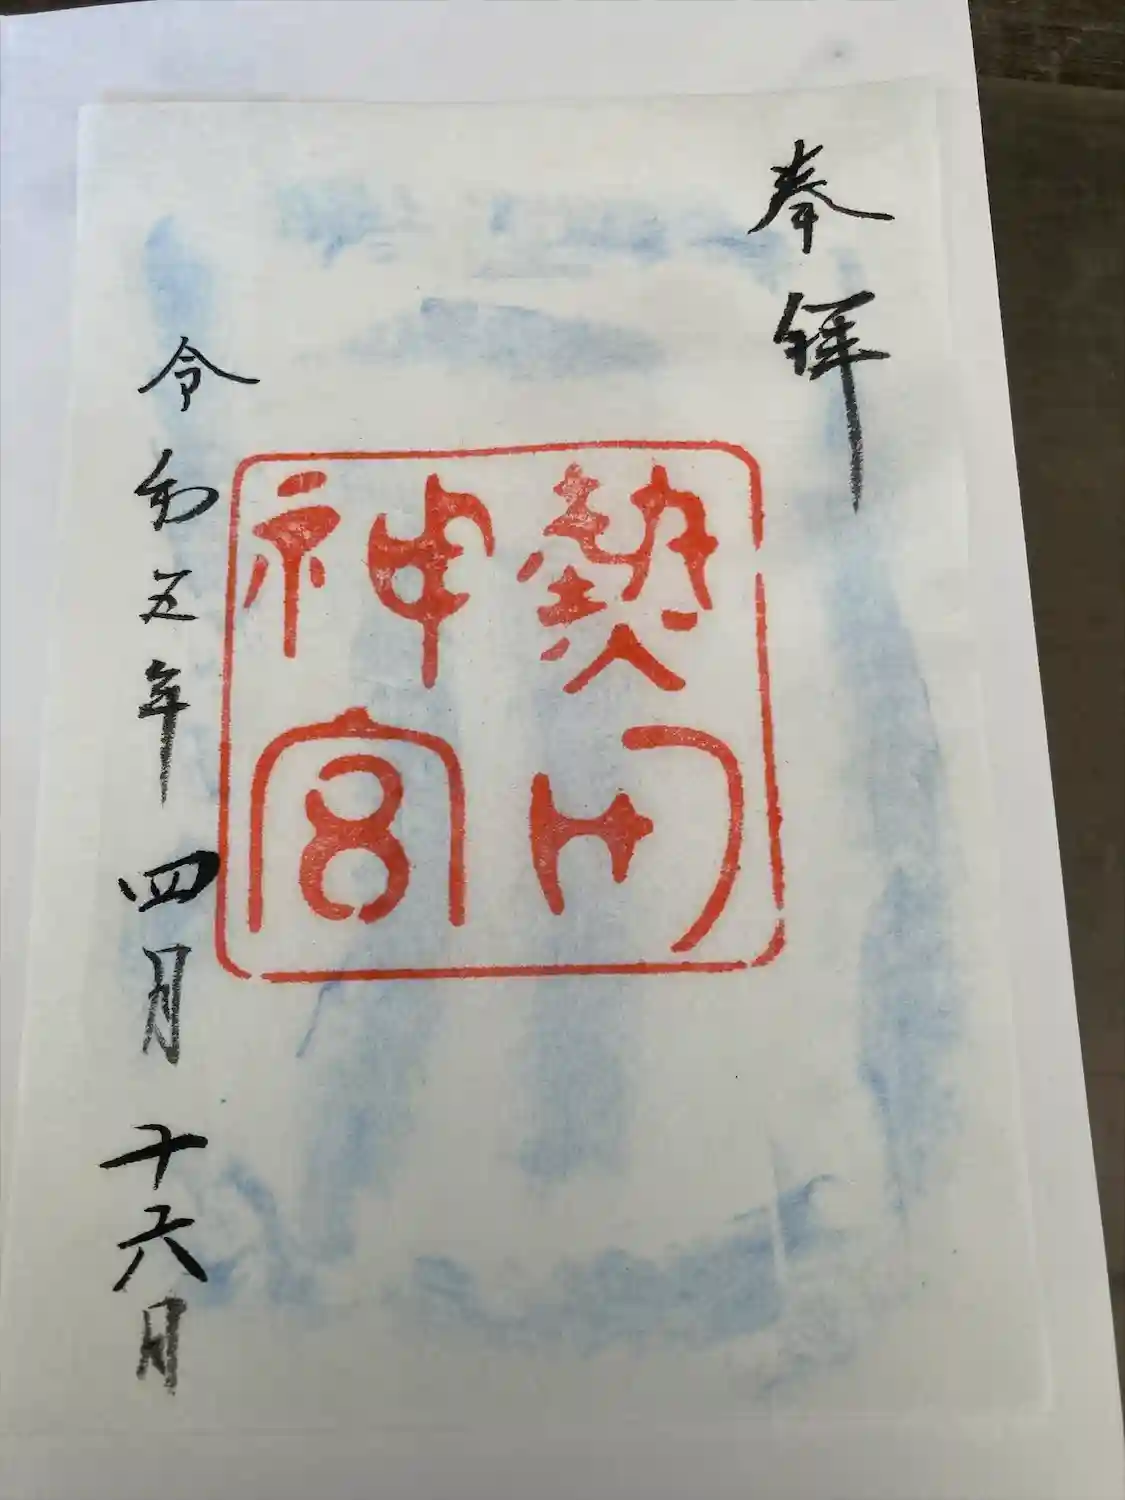 奉拝
熱田
神宮
令和五年四月十六日